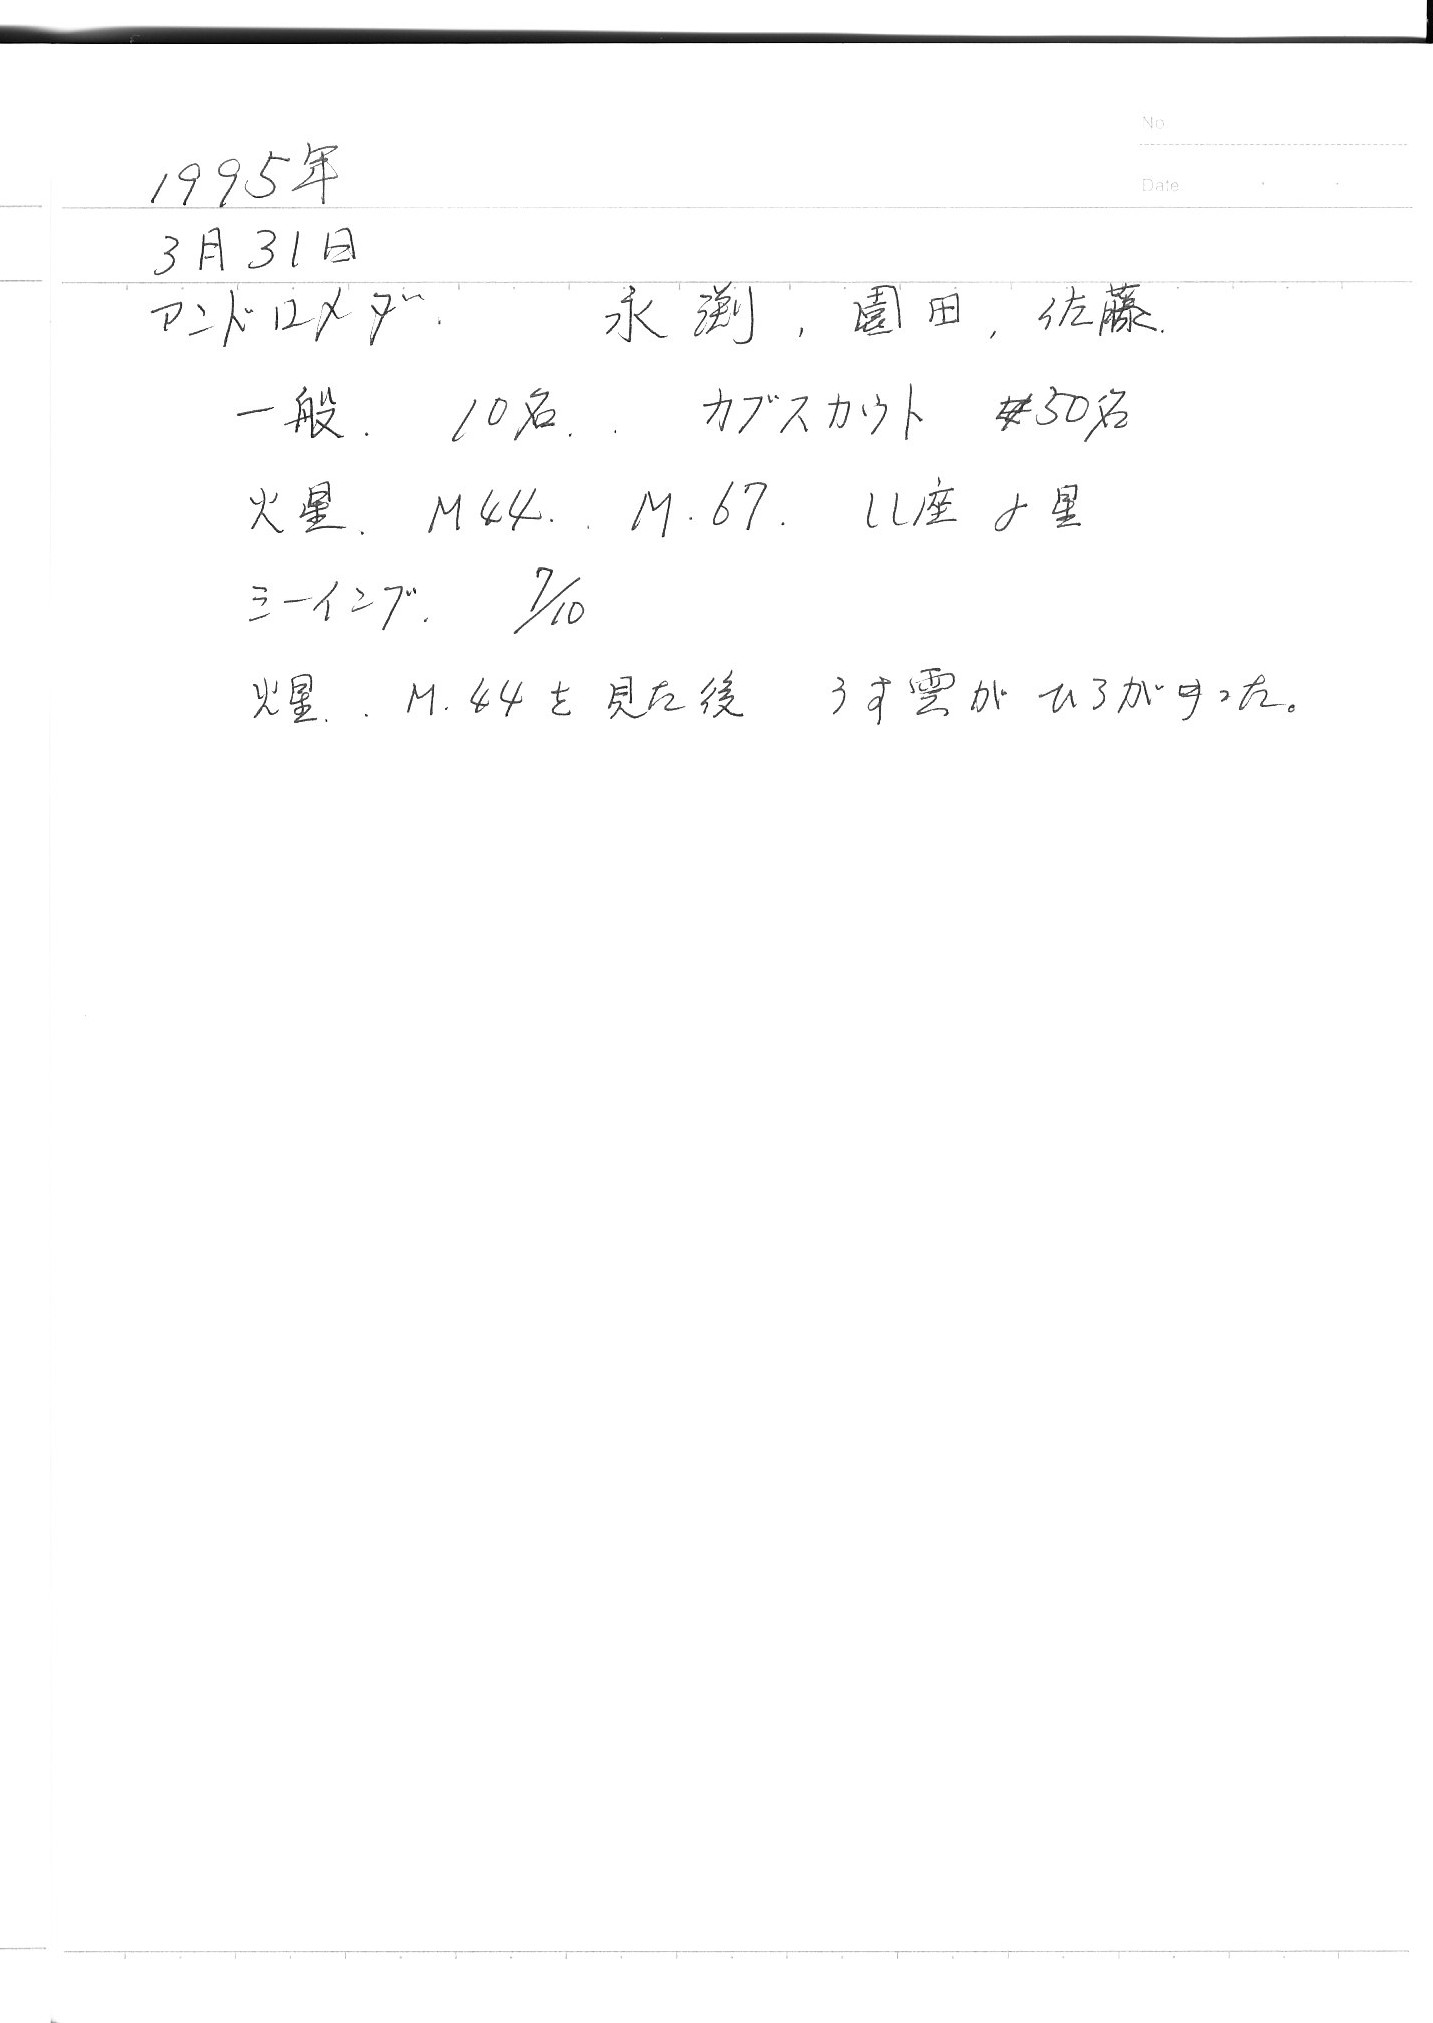 No
Date
1995年
3月31日
アンドロメダ. 永渕, 園田, 佐藤.
一般. 10名.. カブスカウト 50名
火星. M44.. M.67. しし座 γ星
シーイング. 7/10
火星.. M.44を見た後 うす雲がひろがった。